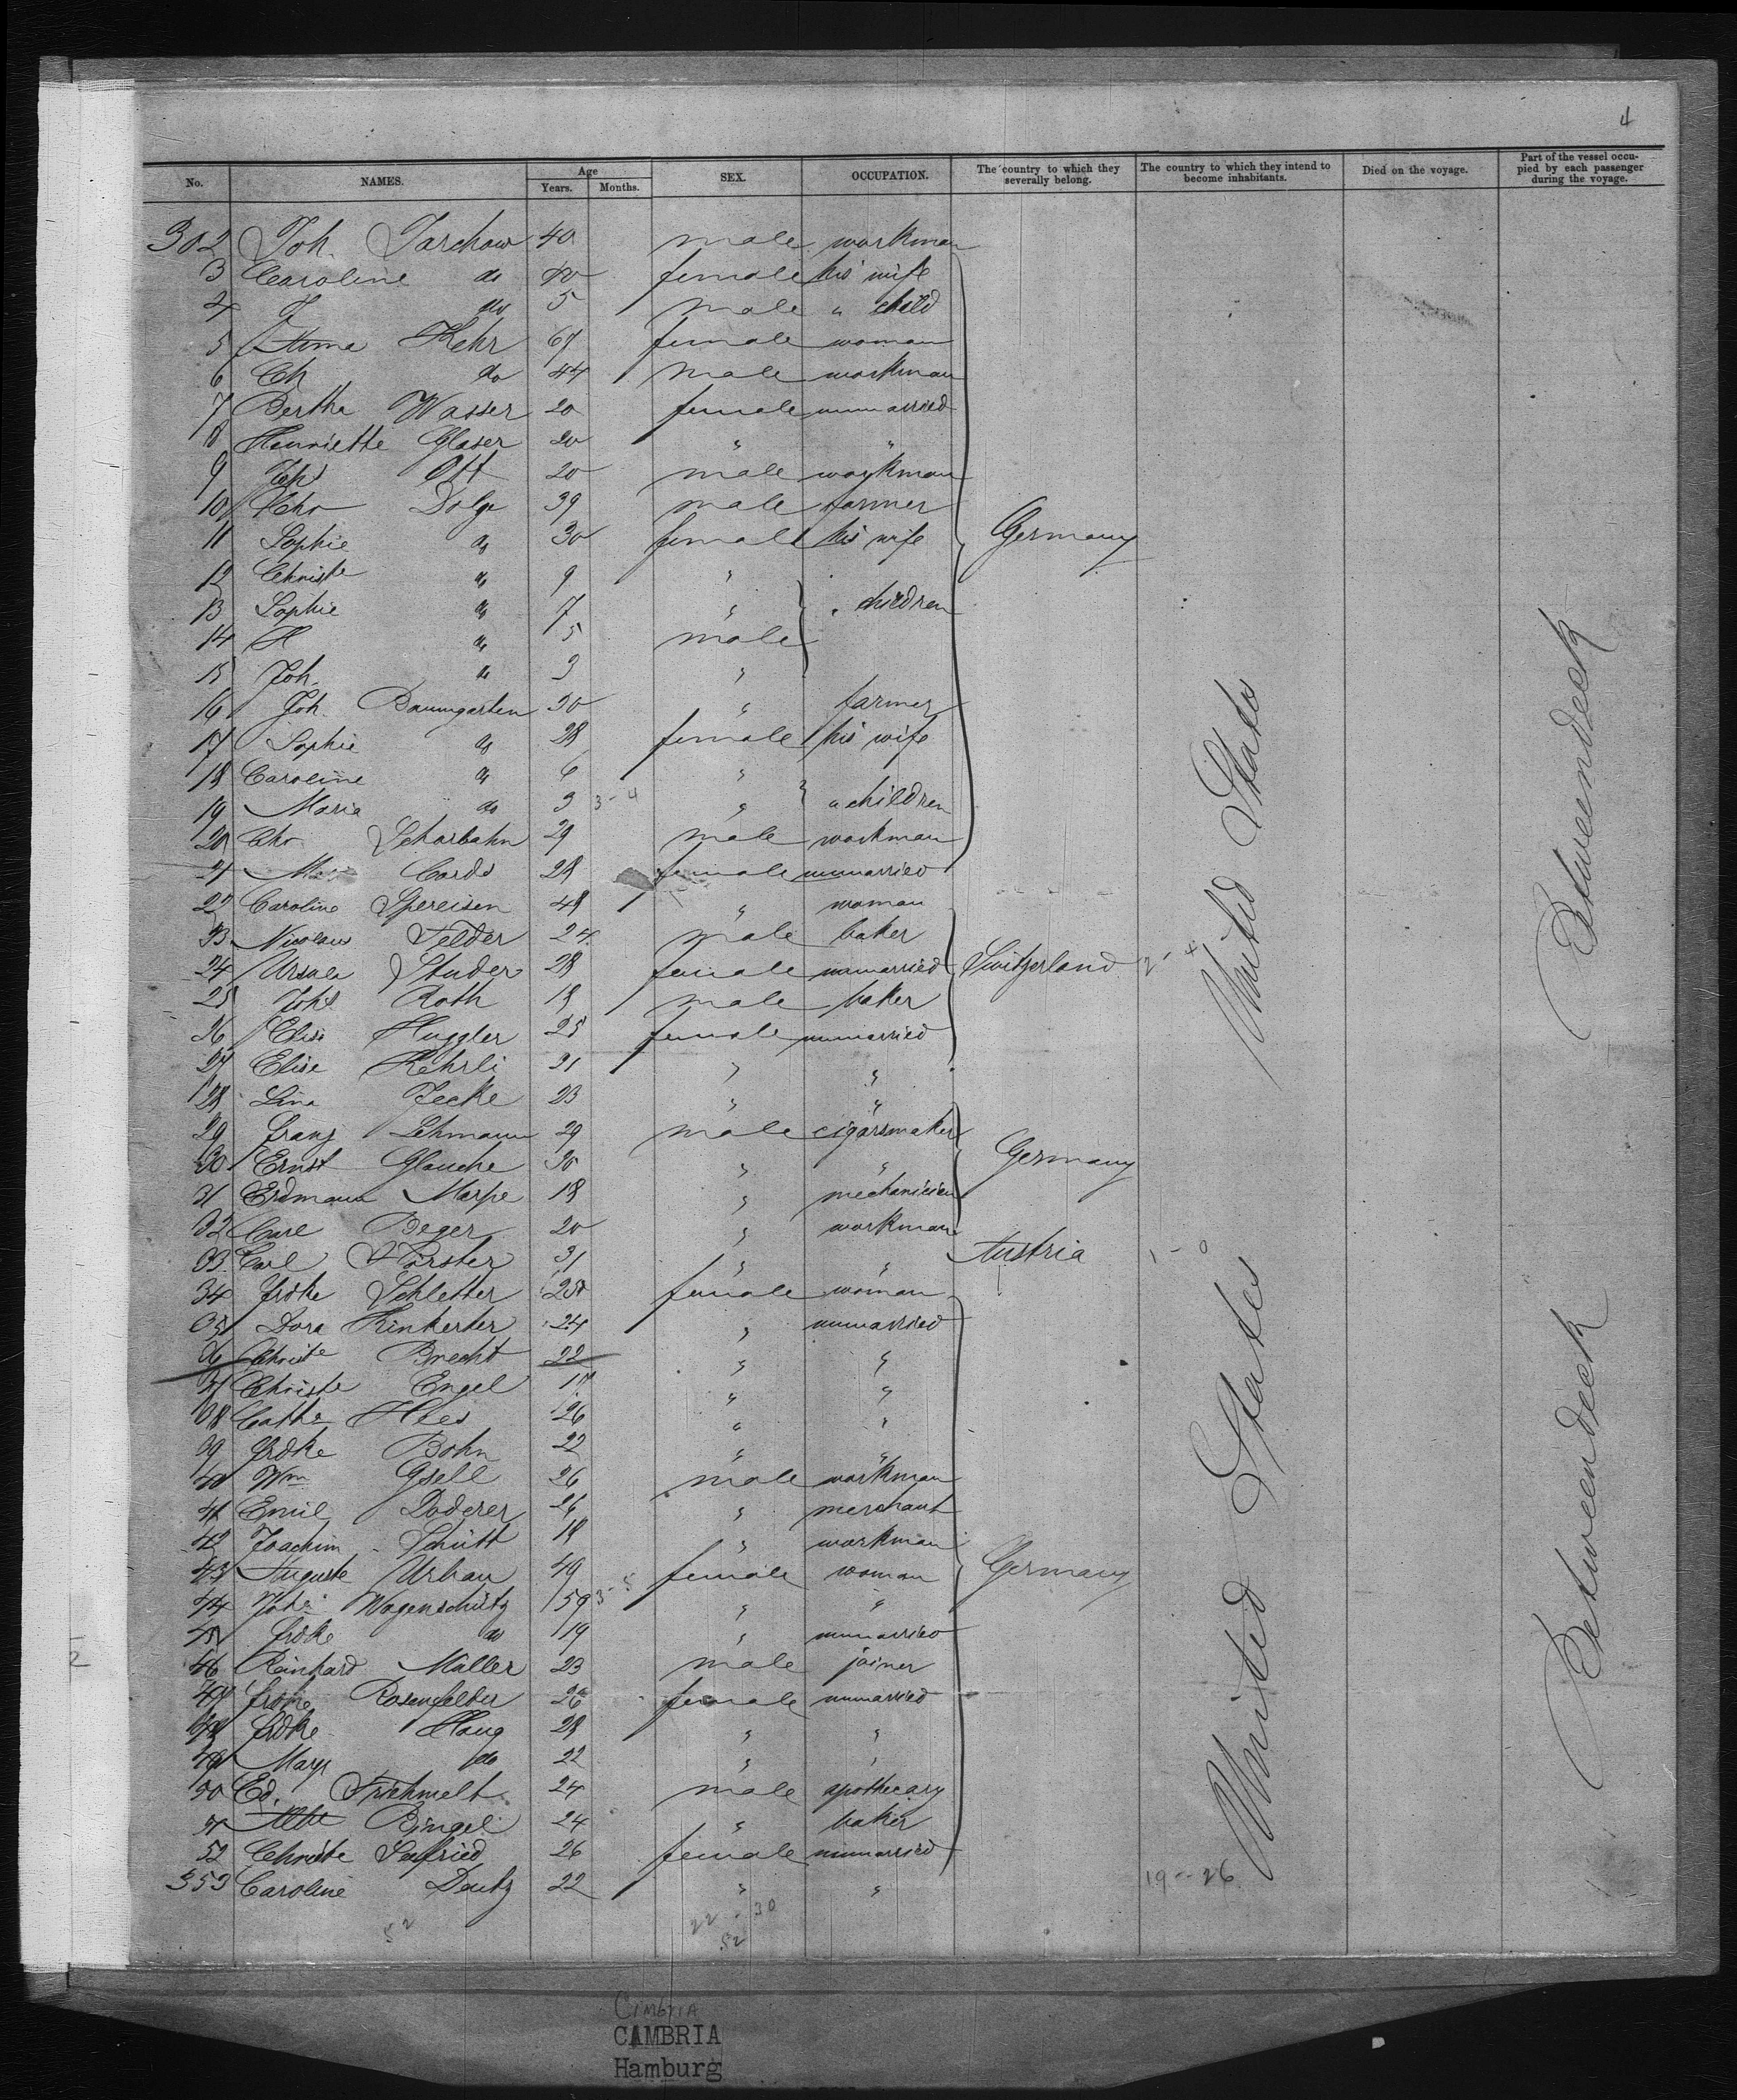 4
No. NAMES. Age Years. Months. SEX. OCCUPATION. The country to which they severally belong. The country to which they intend to become inhabitants. Died on the voyage. Part of the vessel occupied by each passenger during the voyage.
302 Joh. Tarchow 40 male workman
3 Caroline do 40 female his wife
4 J do 5 male " child
5 Anna Kehr 67 female woman
6 Ch do 44 male workman
7 Bertha Wasser 20 female unmarried
8 Henriette Glaser 20 " "
9 Joh Ott 20 male workman
10 Chr Dolge 39 male farmer
11 Sophie do 30 female his wife Germany
12 Christe do 9 "
13 Sophie do 7 " " children
14 H do 5 male
15 Joh. do 3 "
16 Joh. Baumgarten 30 " farmer
17 Sophie do 28 female his wife
18 Caroline do 6 "
19 Maria do 3 3-4 " " children
20 Chr Scharbahn 29 male workman
21 Cords 28 female unmarried
22 Caroline Spereisen 48 " woman
23 Nicolaus Felder 24 male baker
24 Ursula Studer 28 female unmarried Switzerland 2 4 United States Betweendeck
25 Joh Roth 18 male baker
26 Elise Huggler 25 female unmarried
27 Elise Kehrli 21 " "
28 Lina Jecke 23 " "
29 Franz Lehmann 29 male cigarsmaker
30 Ernst Glauche 30 " " Germany
31 Erdmann Marpe 18 " mechanician
32 Carl Beger 20 " workman
33 Carl Förster 31 " " Austria 1-0
34 Frdke Schletter 25 female woman
35 Dora Kinkerter 24 " unmarried
36 Christe Brecht 22 " "
37 Christe Engel 17 " "
38 Cathe Hees 26 " "
39 Frdke Bohn 22 " "
40 Wm Gsell 26 male workman
41 Emil Doderer 26 " merchant
42 Joachim Schütt 18 " workman
43 Auguste Urban 49 female woman Germany United States Betweendeck
44 Joh Wagenschütz 59 3-5 " "
45 Frdke do 19 " unmarried
46 Reinhard Müller 23 male joiner
47 Rosenfelder 26 female unmarried
48 Frdke Haug 28 " "
49 Mary do 22 " "
50 Ed. Frohmelt 24 male apothecary
51 Bingel 24 " baker
52 Christe Seifried 26 female unmarried
353 Caroline Deutz 22 " " 19-26
52 22-30
52
Cimbria
CAMBRIA
Hamburg